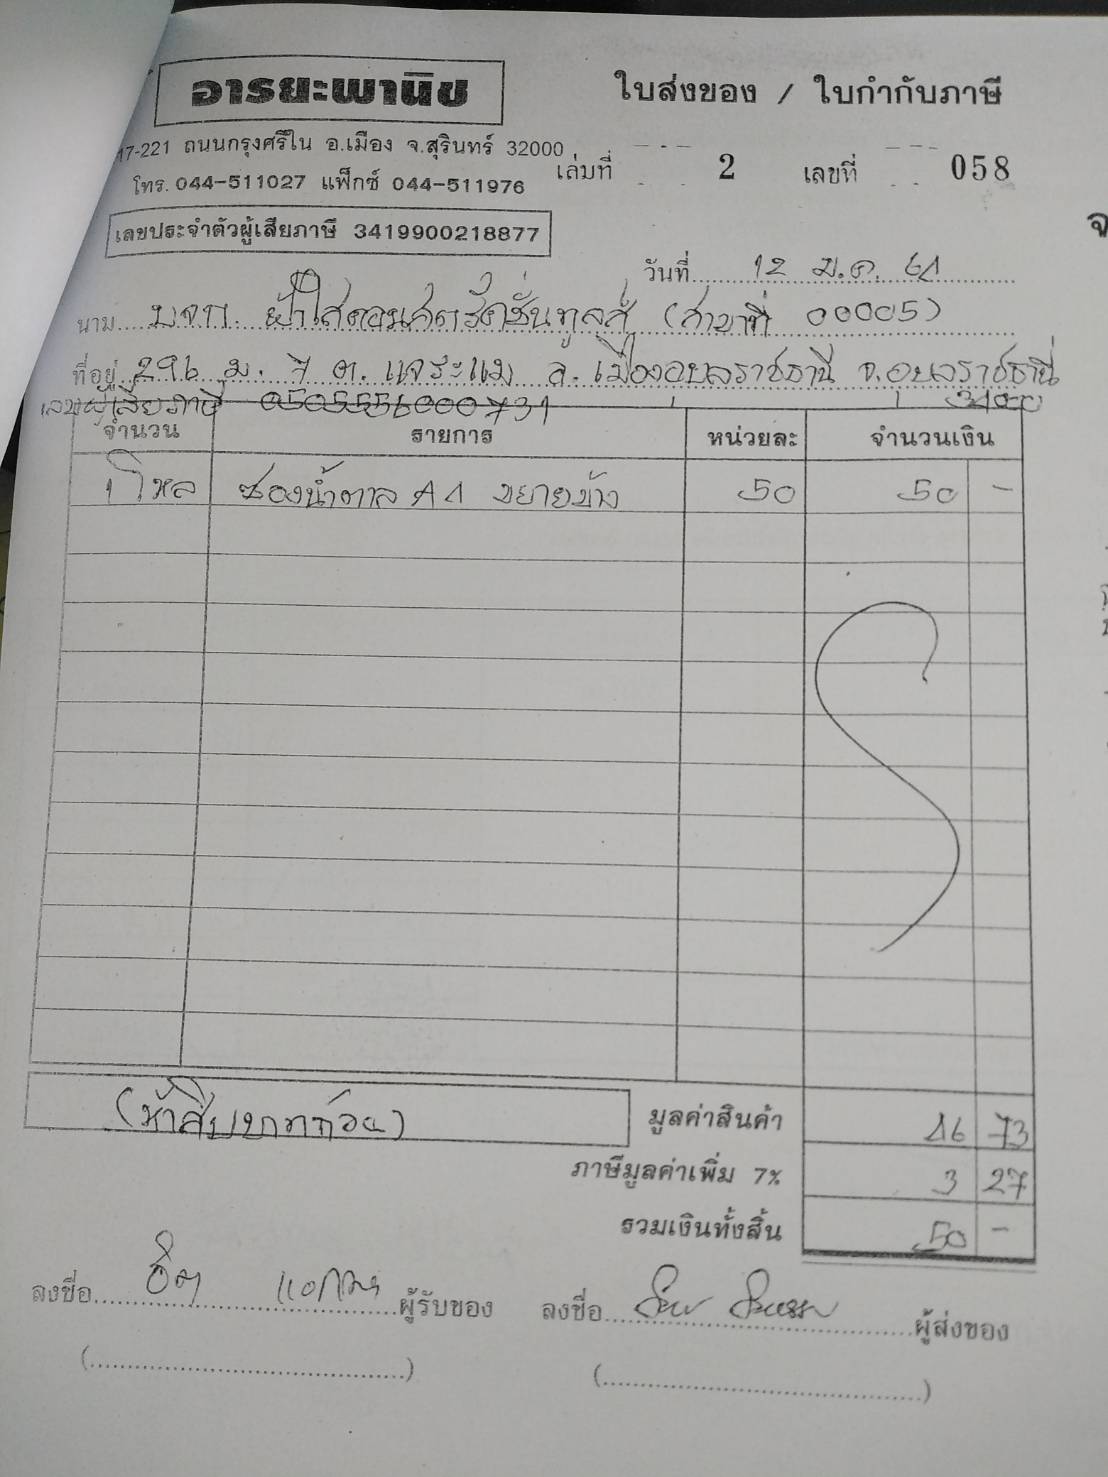 อารยะพานิช
ใบส่งของ / ใบกำกับภาษี
17-221 ถนนกรุงศรีใน อ.เมือง จ.สุรินทร์ 32000
โทร. 044-511027 แฟ็กซ์ 044-511976
เล่มที่ 2 เลขที่ 058
เลขประจำตัวผู้เสียภาษี 3419900218877
จ
วันที่ 12 ม.ค. 61
นาม บจก. ฝ้าใสคอนสตรัคชั่นทูลส์ (สาขาที่ 00005)
ที่อยู่ 296 ม. 7 ต. แจระแม อ. เมืองอุบลราชธานี จ.อุบลราชธานี
เลขผู้เสียภาษี 0505556000731
จำนวน รายการ หน่วยละ จำนวนเงิน
1 โหล ซองน้ำตาล A4 ขยายข้าง 50 50 -
(ห้าสิบบาทถ้วน)
มูลค่าสินค้า 46 73
ภาษีมูลค่าเพิ่ม 7% 3 27
รวมเงินทั้งสิ้น 50 -
ลงชื่อ ผู้รับของ ลงชื่อ ผู้ส่งของ